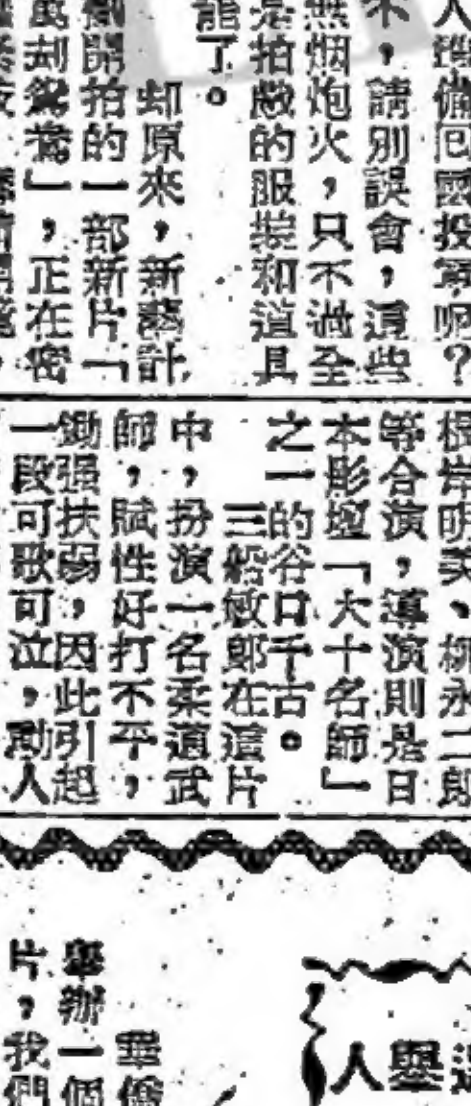 人準備回國投軍呢？
不，請別誤會，這些
無烟炮火，只不過全
是拍戲的服裝和道具
能了。
却原來，新藝計
劃開拍的一部新片「
萬刦鴛鴦」，正在密
根岸明美、柳永二郎
等合演，導演則是日
本影壇「大十名師」
之一的谷口千古。
三船敏郎在這片
中，扮演一名柔道武
師，賦性好打不平，
鋤强扶弱，因此引起
一段可歌可泣，動人
選舉人
華僑
舉辦一個
片，我們